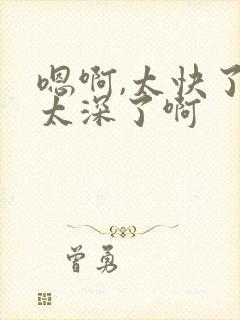 嗯啊,太快了
太深了啊
曾勇